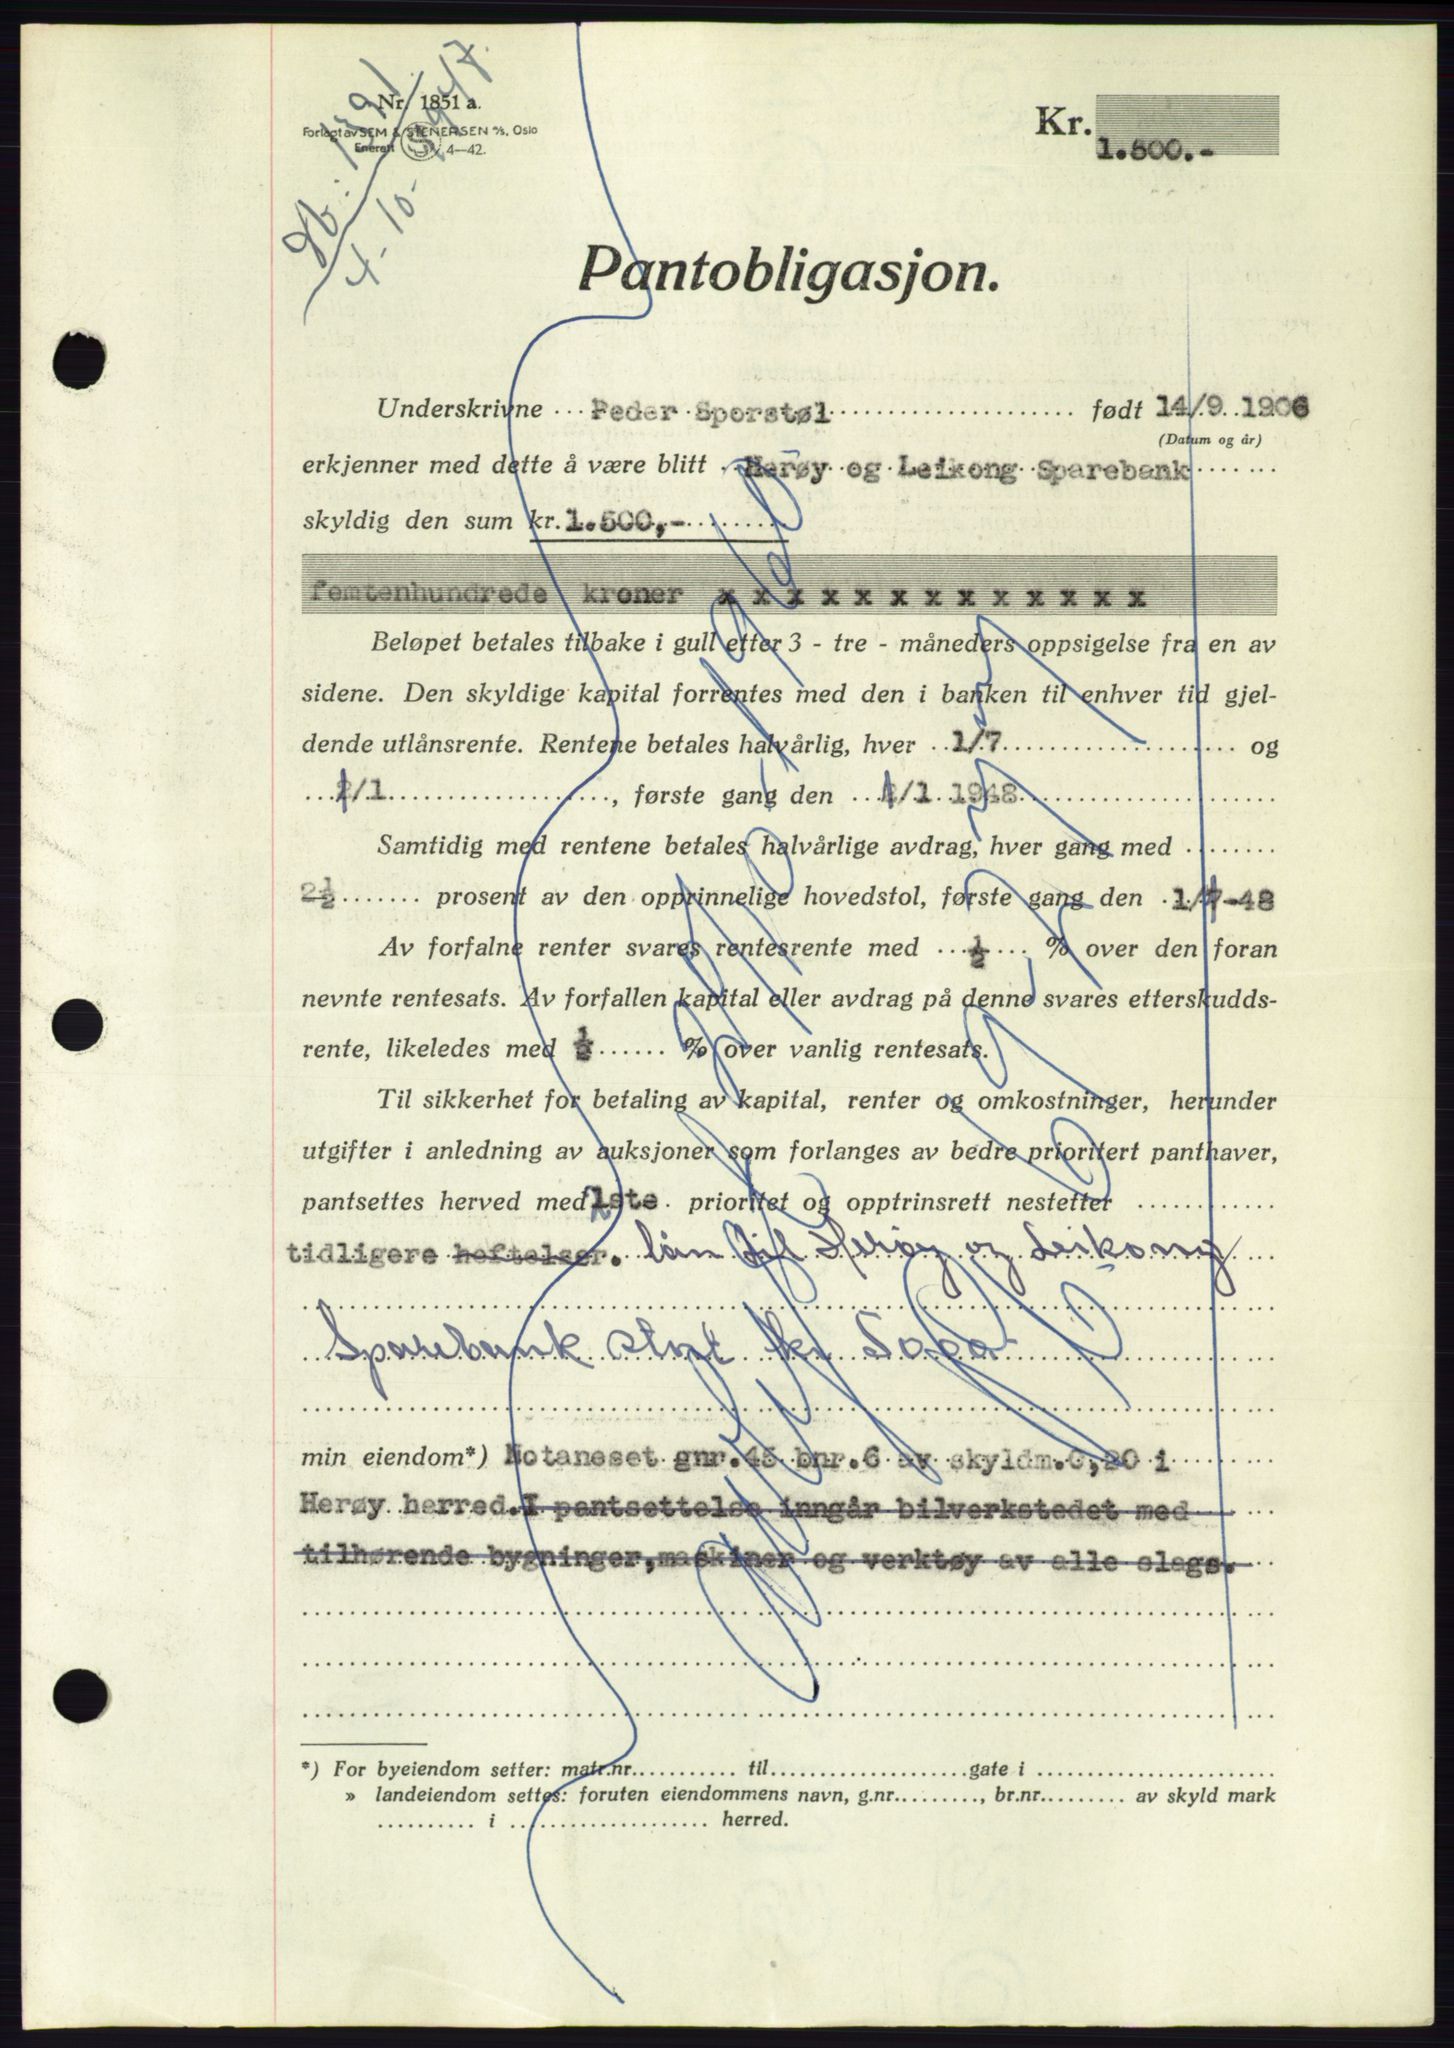 Nr. 1851 a.
Forlagt av SEM & STENERSEN A/S, Oslo
Enerett S 4—42.
4-10-1947.
Kr. 1.500.-
Pantobligasjon.
Underskrivne Peder Sporstøl født 14/9 1906
(Datum og år)
erkjenner med dette å være blitt Herøy og Leikong Sparebank
skyldig den sum kr. 1.500,-
femtenhundrede kroner x x x x x x x x x x x x x
Beløpet betales tilbake i gull etter 3 - tre - måneders oppsigelse fra en av
sidene. Den skyldige kapital forrentes med den i banken til enhver tid gjel-
dende utlånsrente. Rentene betales halvårlig, hver 1/7 og
/1, første gang den /1 1948
Samtidig med rentene betales halvårlige avdrag, hver gang med
2½ prosent av den opprinnelige hovedstol, første gang den 1/7-48
Av forfalne renter svares rentesrente med ½ % over den foran
nevnte rentesats. Av forfallen kapital eller avdrag på denne svares etterskudds-
rente, likeledes med ½ % over vanlig rentesats.
Til sikkerhet for betaling av kapital, renter og omkostninger, herunder
utgifter i anledning av auksjoner som forlanges av bedre prioritert panthaver,
pantsettes herved med 1ste prioritet og opptrinsrett nestetter
tidligere heftelser. lån til Herøy og Leikong
Sparebank stort kr
min eiendom*) Notaneset gnr.45 bnr.6 av skyldm.0,20 i
Herøy herred. I pantsettelse inngår bilverkstedet med
tilhørende bygninger, maskiner og verktøy av alle slags.
*) For byeiendom setter: matr.nr. til gate i
» landeiendom settes: foruten eiendommens navn, g.nr., br.nr. av skyld mark
i herred.